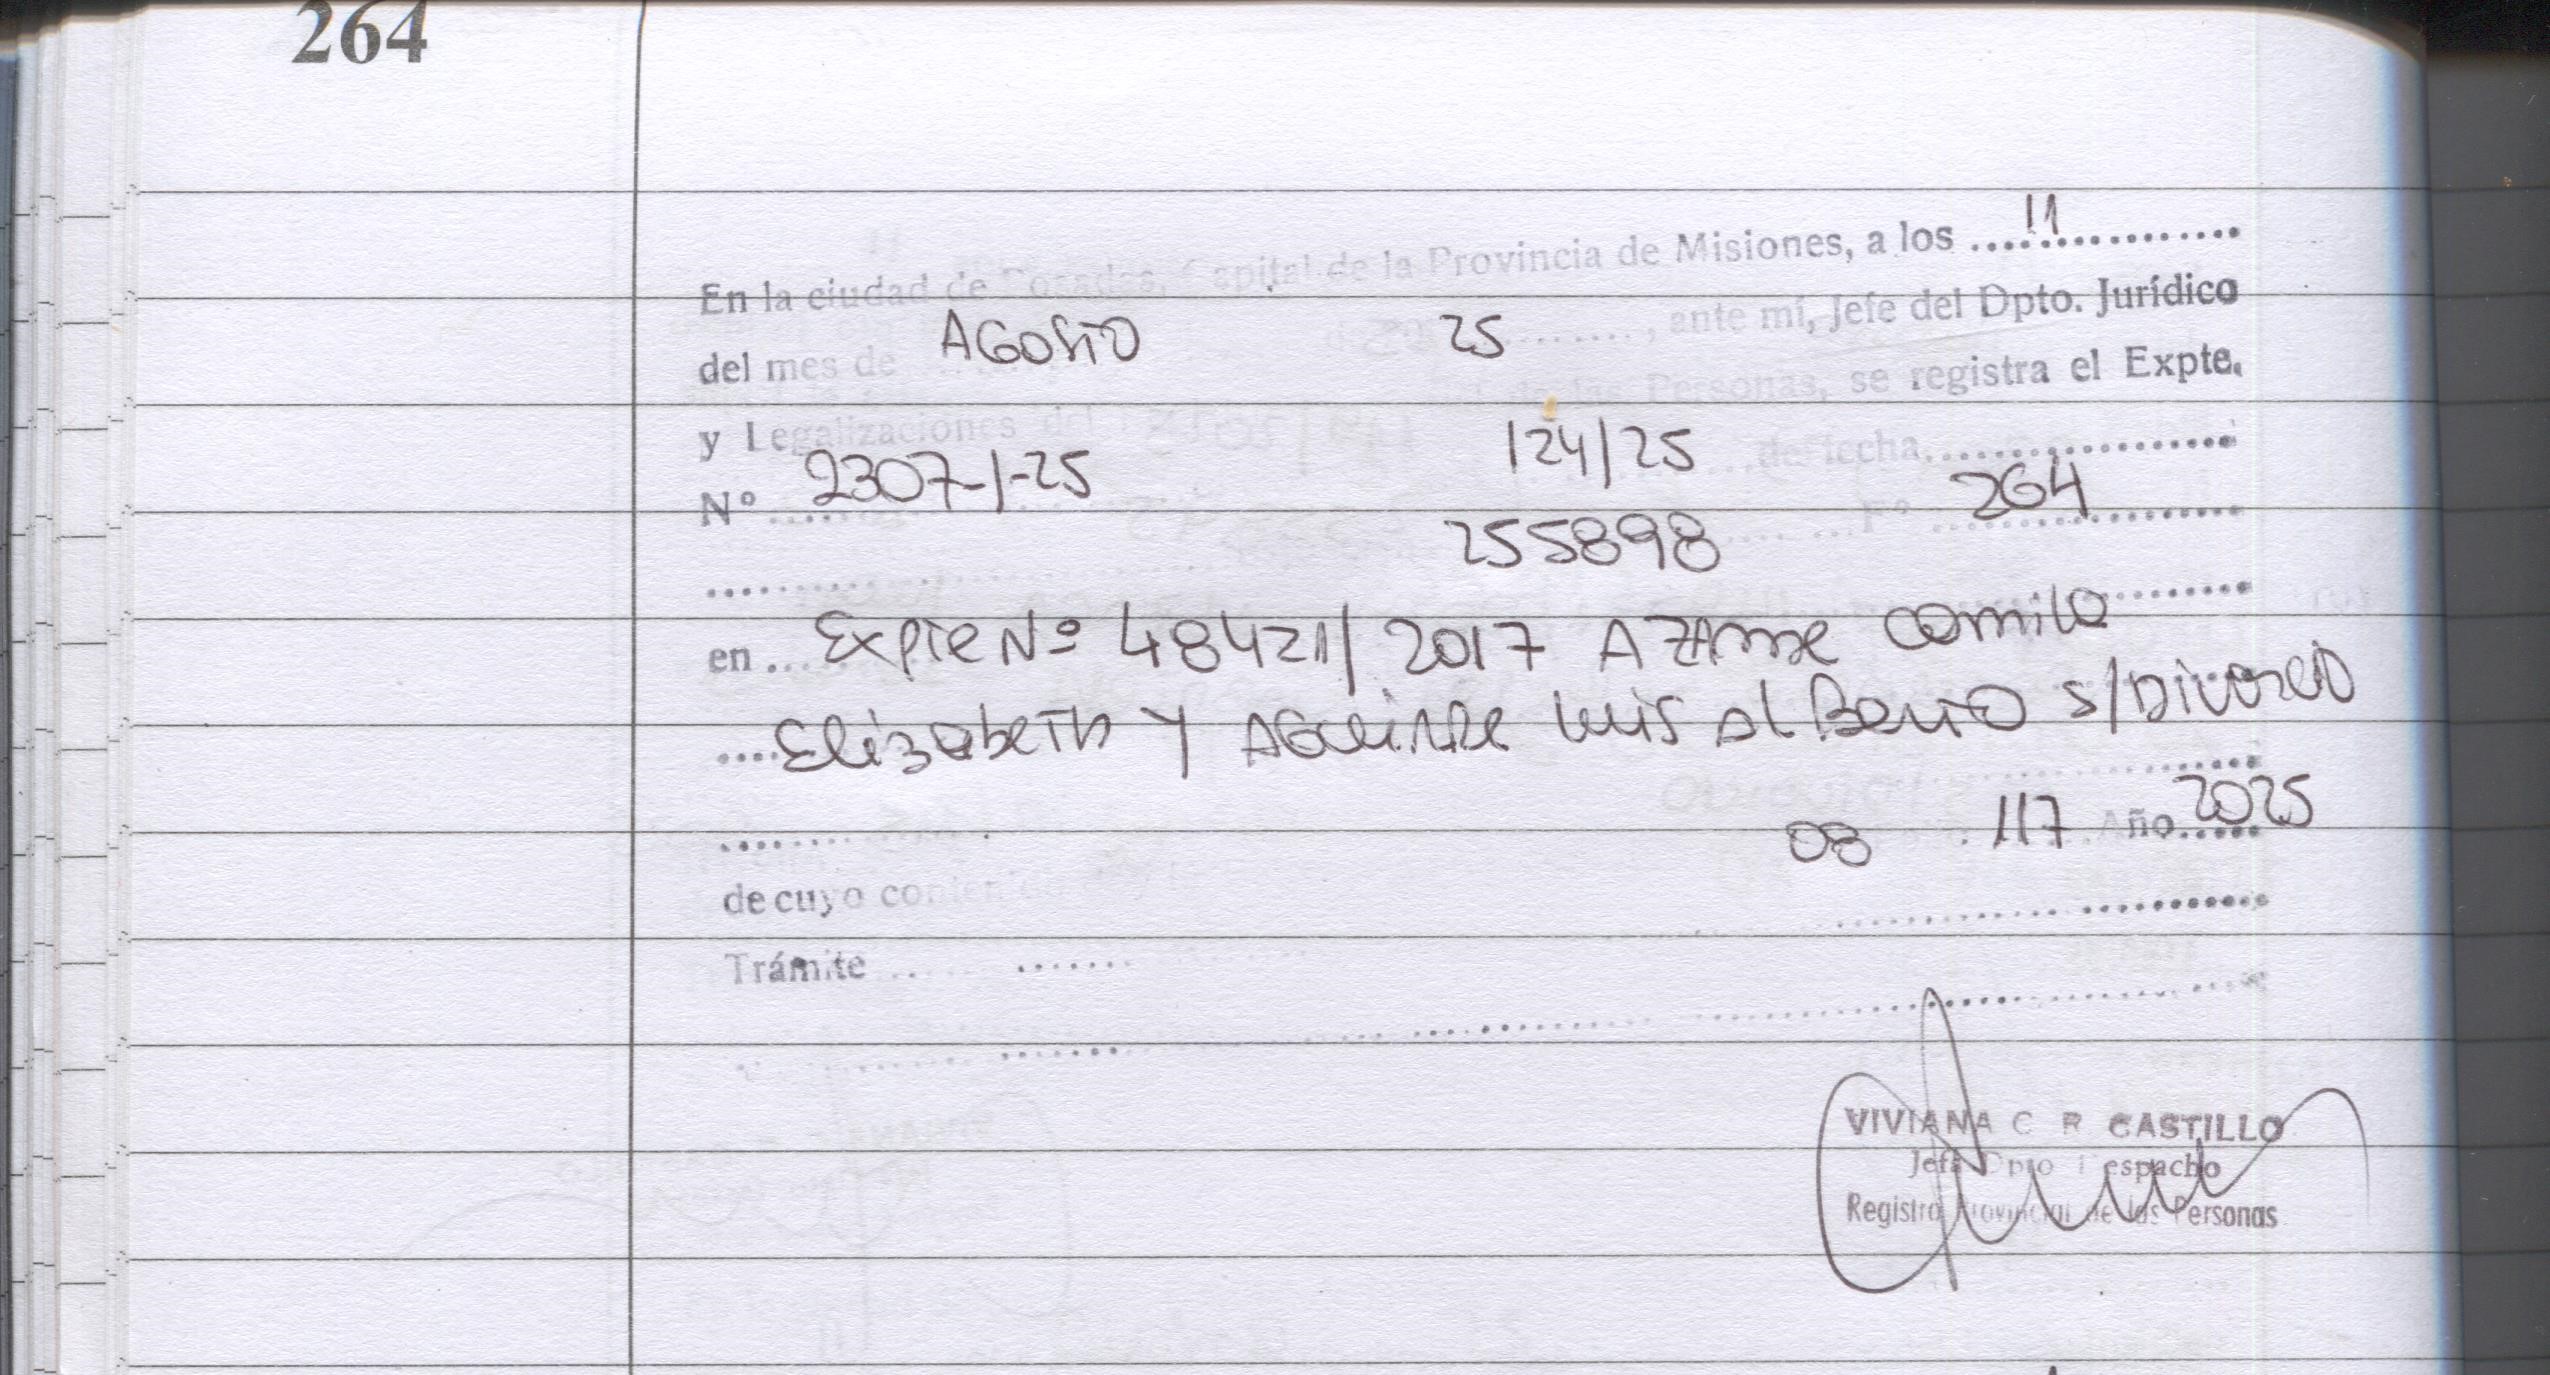 264
En la ciudad de Posadas, Capital de la Provincia de Misiones, a los 11
del mes de AGOSTO 25 , ante mí, Jefe del Dpto. Jurídico
y Legalizaciones del las Personas, se registra el Expte.
Nº 2307-1-25 124/25 de fecha
255898 Fº 264
en Expte Nº 48421/2017 Camila
Elizabeth Y AGUIRRE Luis Alberto S/Divorcio
08 117 Año 2025
de cuyo contenido
Trámite
VIVIANA C R CASTILLO
Jefa Dpto Despacho
Registro Provincial de las Personas